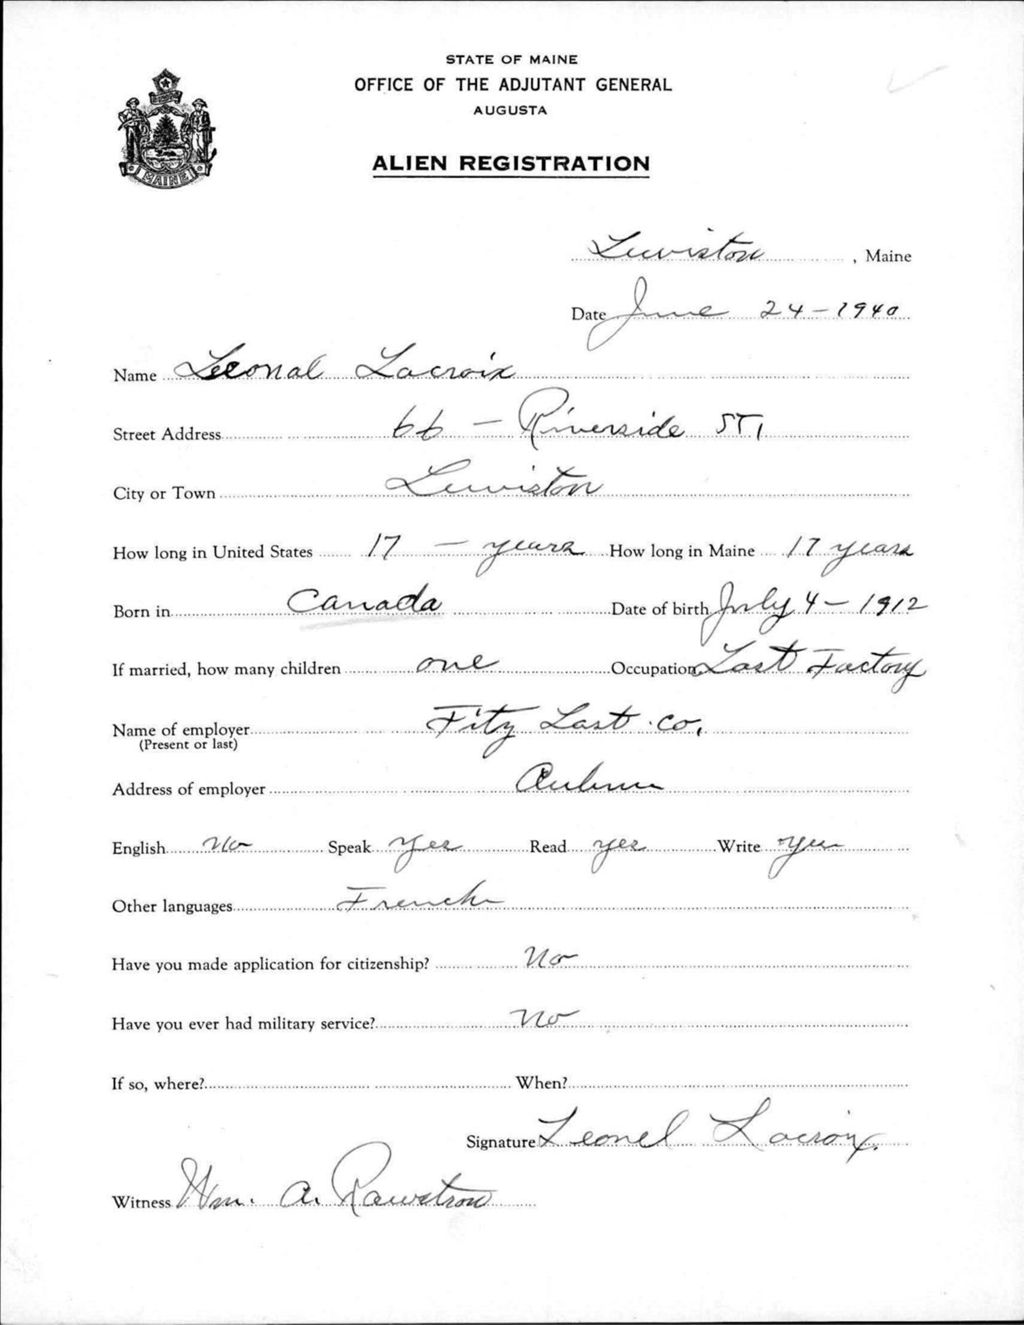 STATE OF MAINE
OFFICE OF THE ADJUTANT GENERAL
AUGUSTA
ALIEN REGISTRATION
MAINE
Lewiston, Maine
Date June 24-1940
Name Leonal Lacroix
Street Address 66 - Riverside ST,
City or Town Lewiston
How long in United States 17 - years How long in Maine 17 years
Born in Canada Date of birth July 4 - 1912
If married, how many children one Occupation Last Factory
Name of employer Fitz Last Co,
(Present or last)
Address of employer Auburn
English No Speak Yes Read yes Write Yes
Other languages French
Have you made application for citizenship? No
Have you ever had military service? No
If so, where? When?
Signature Leonel Lacroix
Witness Wm. A. Rawstron